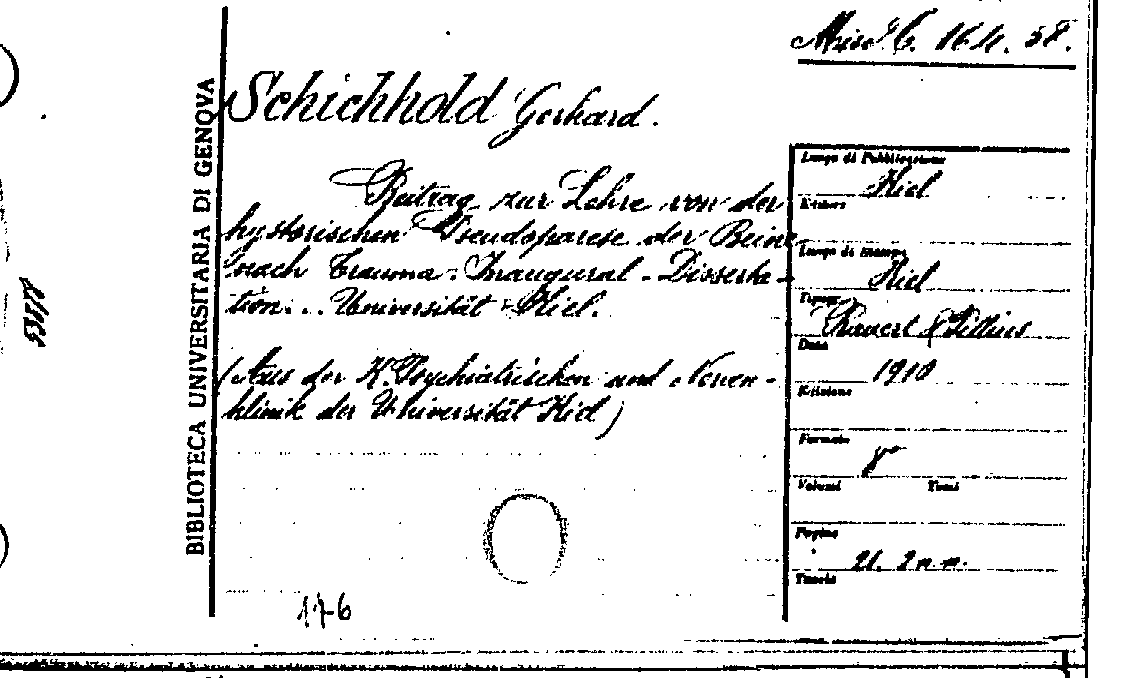 Misc. C. 16.4. 58.
BIBLIOTECA UNIVERSITARIA DI GENOVA
Schichhold Gerhard.
Beitrag zur Lehre von der
hysterischen Pseudoparese der Beine
nach Trauma. Inaugural-Disserta-
tion... Universität Kiel.
(Aus der K. Psychiatrischen und Nerven-
klinik der Universität Kiel)
176
Luogo di Pubblicazione
Kiel
Editore
Luogo di stampa
Kiel
Tipogr.
Data
1910
Edizione
Formato
8°
Volumi Tomi
Pagine
21. 2 n.n.
Tavole